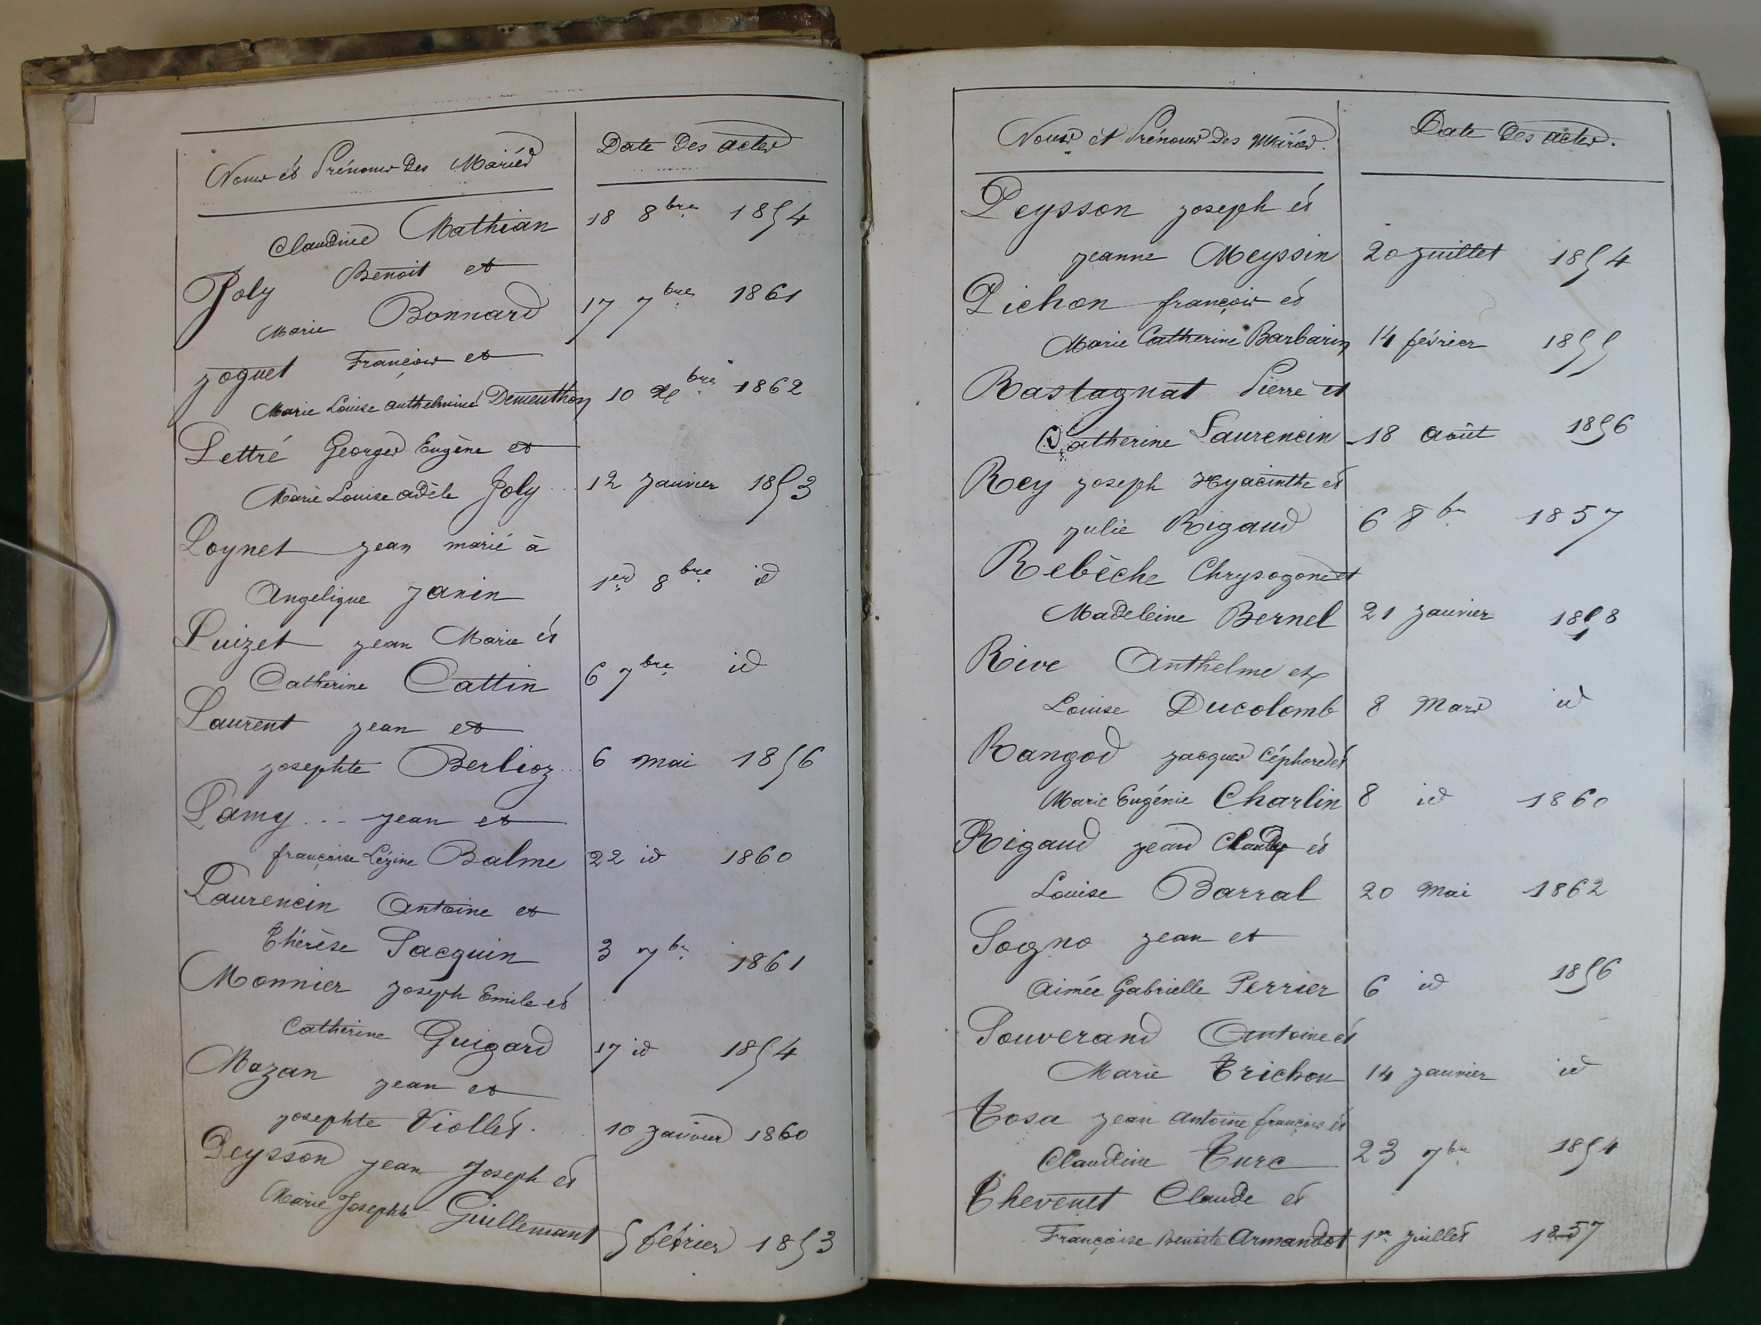 Noms et Prénoms des Mariés Date des actes
Claudine Mathian 18 8bre 1854
Joly Benoit et
Marie Bonnard 17 7bre 1861
Joguet François et
Marie Louise Anthelmine Dementhon 10 Xbre 1862
Lettré Georges Eugène et
Marie Louise adèle Joly 12 Janvier 1853
Loynet Jean marié à
Angélique Janin 1er 8bre id
Luizet Jean Marie et
Catherine Cattin 6 7bre id
Laurent Jean et
Josephte Berlioz 6 mai 1856
Lamy Jean et
françoise Lézine Balme 22 id 1860
Laurencin Antoine et
Thérèse Jacquin 3 7bre 1861
Monnier Joseph Emile et
Catherine Guigard 17 id 1854
Mazan Jean et
Josephte Viollet 10 Janvier 1860
Peysson Jean Joseph et
Marie Josephte Guillemant 5 février 1853
Noms et Prénoms des Mariés. Date des actes.
Peysson Joseph et
Jeanne Meyssin 20 Juillet 1854
Pichon françois et
Marie Catherine Barbarin 14 février 1855
Rastagnat Pierre et
Catherine Laurencin 18 Août 1856
Rey Joseph Hyacinthe et
Julie Rigaud 6 8bre 1857
Rebêche Chrysogone et
Madeleine Bernel 21 Janvier 1858
Rive Anthelme et
Louise Ducolomb 8 Mars id
Rangod Jacques Céphorèd et
Marie Eugénie Charlin 8 id 1860
Rigaud Jean Claude et
Louise Barral 20 Mai 1862
Sogno Jean et
Aimée Gabrielle Perrier 6 id 1856
Souverand Antoine et
Marie Trichon 14 Janvier id
Tosa Jean Antoine françois et
Claudine Turc 23 7bre 1854
Thevenet Claude et
Françoise Benoite Armandot 1er Juillet 1857